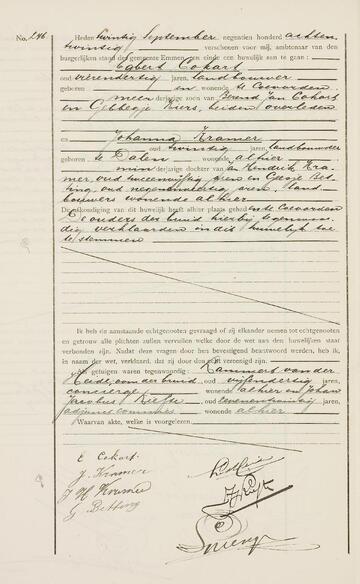 No. 246
Heden twintig September negentien honderd achten
twintig verschenen voor mij, ambtenaar van den
burgerlijken stand der gemeente Emmen, ten einde een huwelijk aan te gaan:
Egbert Cokart
oud vierendertig jaren, landbouwer
geboren en wonende te Coevorden
meerderjarige zoon van Berend Jan Cokart
en Gebbegje Kiers, beiden overleden
en Johanna Kramer
oud twintig jaren, landbouwster
geboren te Dalen wonende alhier
minderjarige dochter van Jan Hendrik Kra-
mer, oud tweeenvijftig jaren en Geesje Bet-
ting, oud negenenveertig jaren, land-
bouwers wonende alhier
De afkondiging van dit huwelijk heeft alhier plaats gehad en te Coevorden
D'ouders der bruid hierbij tegenwoor-
dig verklaarden in dit huwelijk toe
te stemmen
Ik heb de aanstaande echtgenooten gevraagd of zij elkander nemen tot echtgenooten
en getrouw alle plichten zullen vervullen welke door de wet aan den huwelijken staat
verbonden zijn. Nadat deze vragen door hen bevestigend beantwoord werden, heb ik,
in naam der wet, verklaard, dat zij door den echt vereenigd zijn.
Als getuigen waren tegenwoordig: Lammert van der
Heide, oom der bruid oud vijfendertig jaren,
concierge wonende alhier en Johan
Jacobus Kiefte oud zevenentwintig jaren,
adjunct commies wonende alhier
Waarvan akte, welke is voorgelezen
E Cokart
J. Kramer
J H Kramer
G Betting